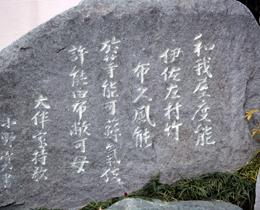 和我屋度能
伊佐左村竹
布久風能
於等能可蘇氣伎
許能由布敝可母
大伴家持歌
小野寛書